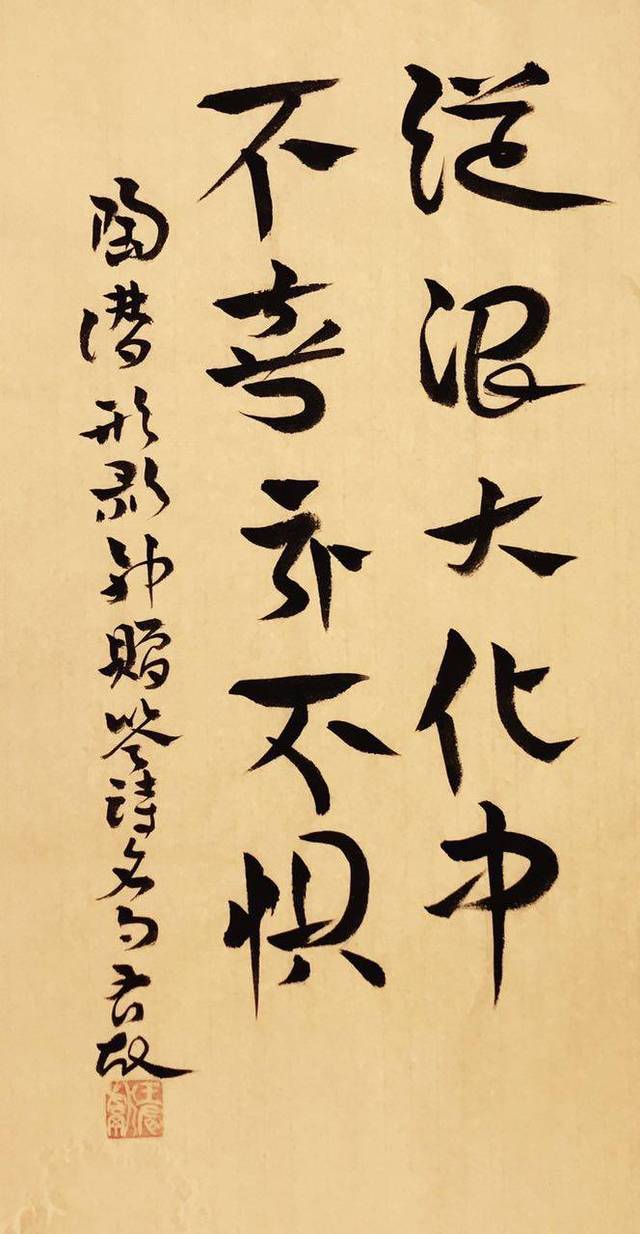 縱浪大化中
不喜亦不惧
陶潜形影神贈答詩名句